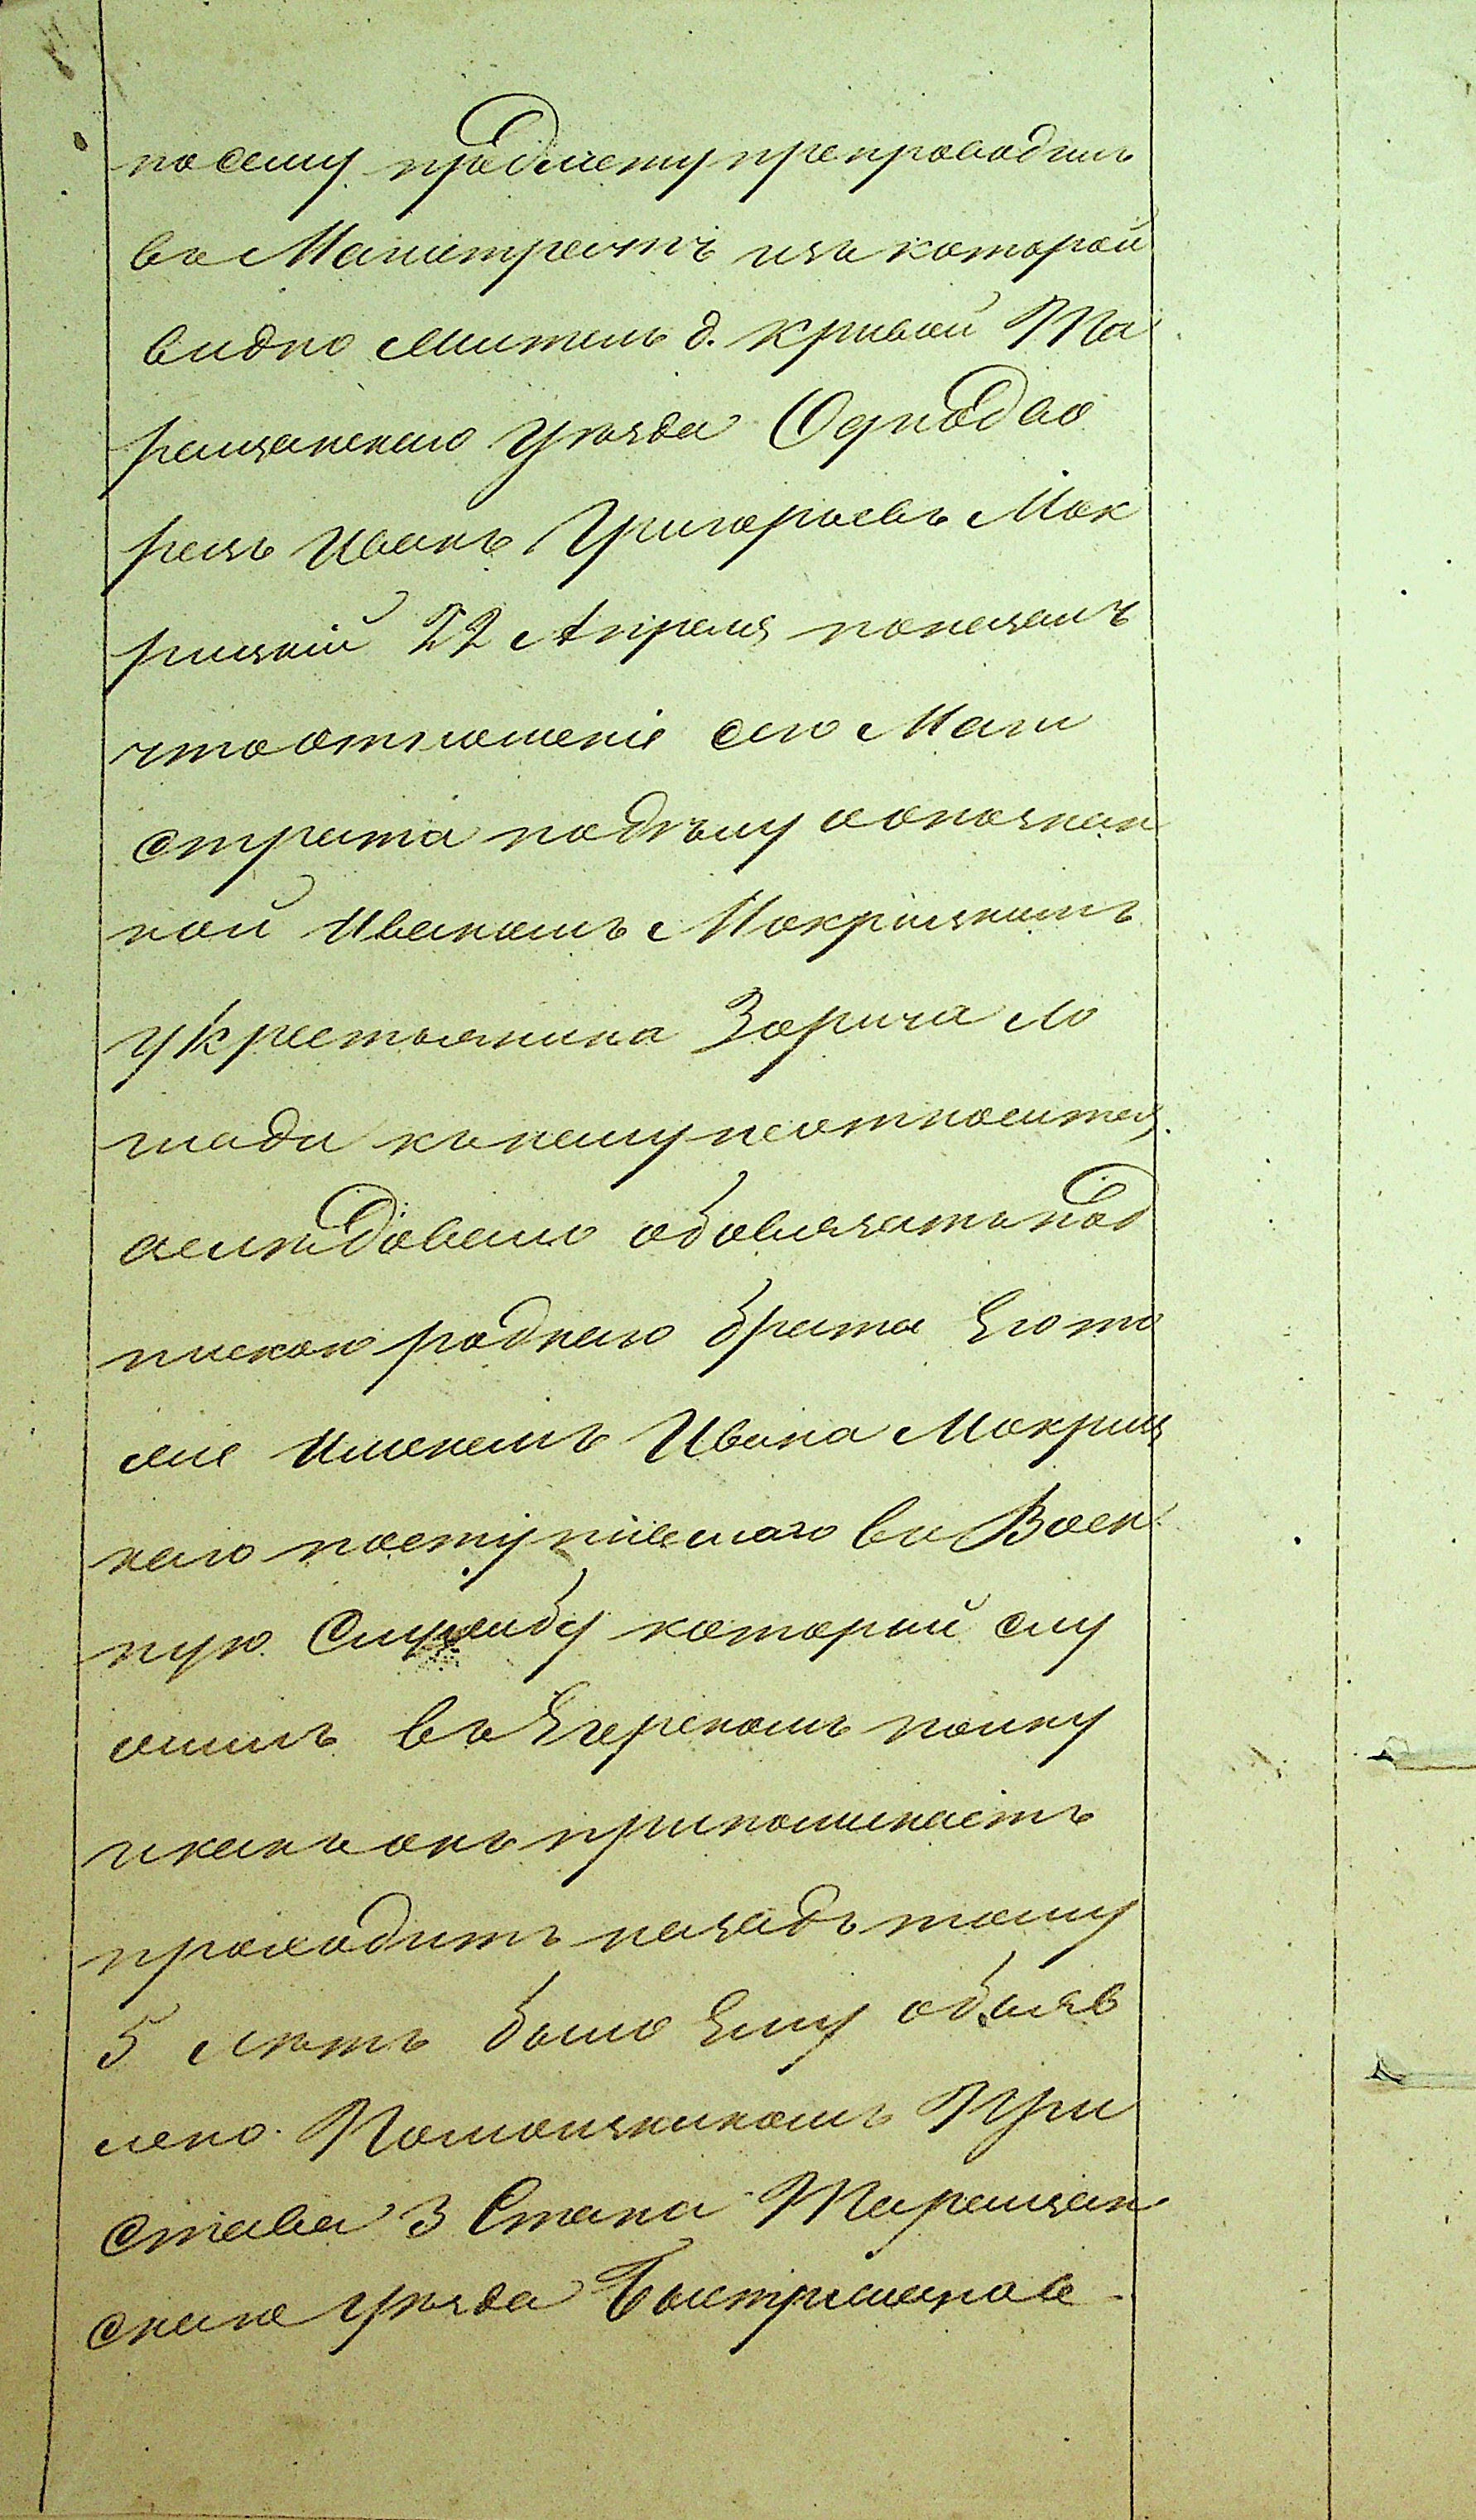 по сему предмету препроводилъ
въ Магистратъ изъ которой
видно житель д. Кривой Та
ращанского уѣзда Однодво
рецъ Иванъ Григорьевъ Мок
рицкій 22 Апреля показалъ
что отношеніе сего Маги
страта по дѣлу о опознан
ной Иваномъ Мокрицкимъ
у Крестьянина Зорича ло
шади къ нему неотносится,
аслѣдовало обовязать под
пискою роднаго брата Его то
же Именемъ Ивана Мокриц
каго поступившаго въ Воен
ную Службу который слу
жилъ въ Егерскомъ полку
и какъ онъ припоминаетъ
проходитъ назадъ тому
5 лѣтъ было Ему объяв
лено Помощникомъ При
става 3 Стана Таращан
скаго уѣзда